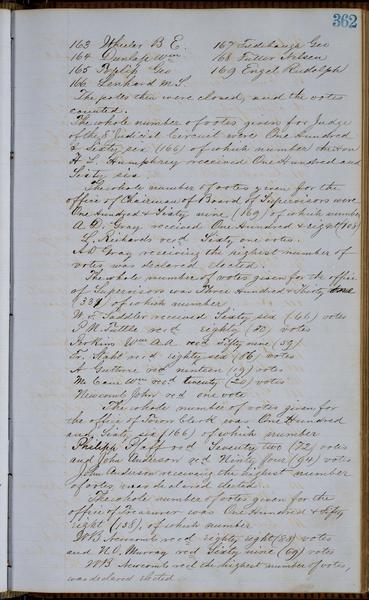 362
163 Wheeler B E. 167 Fredehauza Geo
164 Dunlap Wm 168 Tutter Nelson
165 Geo 169 Engel Rudolph
166 Lenhard M. S.
The poles then were closed, and the votes
counted.
The whole number of votes given for Judge
of the 8 Judicial Circuit were One Hundred
& Sixty six (166) of which number Hon
H. L. Humphrey received One Hundred and
Sixty six
The whole number of votes given for the
office of Chairman of Board of Supervisors were
One Hundred & Sixty nine (169) of which number
A. D. Gray received One Hundred & eight (108)
L. Richards recd Sixty one votes.
A D Gray receiving the highest number of
votes was declared elected.
The whole number of votes given for the office
of Supervisors was Three Hundred & Thirty
(331) of which number
W. F. Saddler received Sixty six (66) votes
P. N. Tuttle recd eighty (80) votes
Perkins Wm A. A recd Fifty nine (59)
Or. Stahl recd eighty six (86) votes
A Guthrie recd nineteen (19) votes
Mc Cune Wm recd twenty (20) votes
Newcomb John recd one vote
The whole number of votes given for
the office of Town Clerk was One Hundred
and Sixty six (166) of which number
Philipp Pfaff recd Seventy two (72) votes
and John Anderson recd Ninety four (94) votes
John Anderson receiving the highest number
of votes, was declared elected.
The whole number of votes given for the
office of Treasurer was One Hundred & fifty
eight (158), of which number
W B Newcomb recd eighty eight (88) votes
and N. O. Murray recd Sixty nine (69) votes
W B Newcomb recd the highest number of votes,
was declared elected